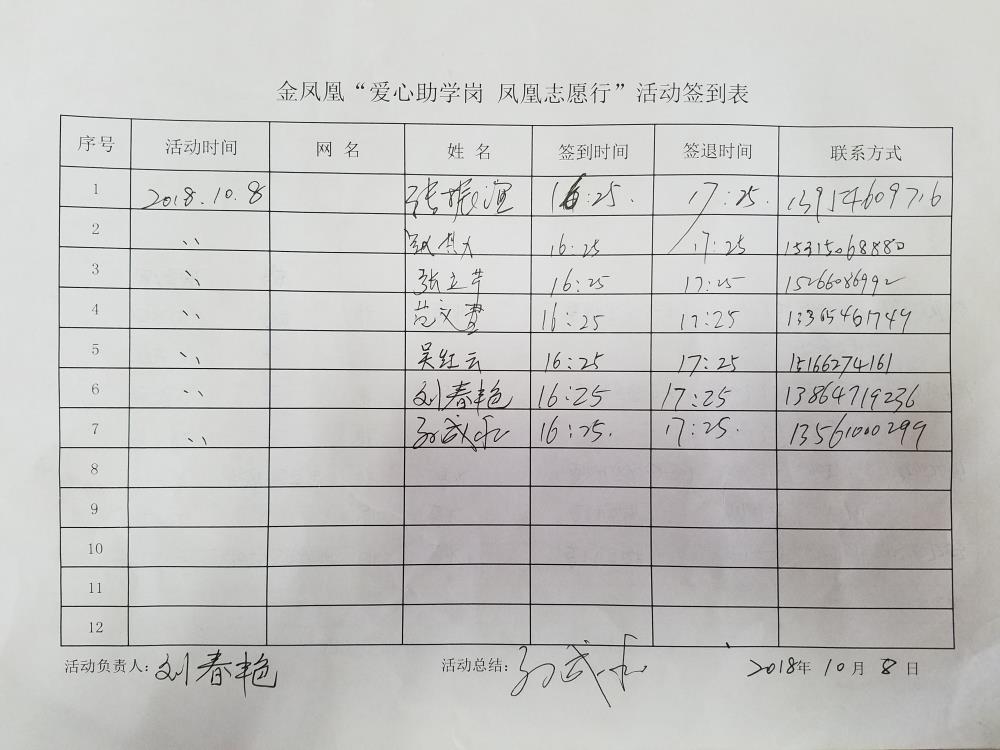 金凤凰“爱心助学岗 凤凰志愿行”活动签到表
序号 活动时间 网 名 姓 名 签到时间 签退时间 联系方式
1 2018.10.8 张振谊 16:25. 17:25. 13954609716
2 、、 16:25 17:25 15315068880
3 、、 张立芹 16:25 17:25 15266086992
4 、、 范文 16:25 17:25 13365461749
5 、、 吴红云 16:25 17:25 15166274161
6 、、 刘春艳 16:25 17:25 13864719236
7 、、 孙武 16:25. 17:25. 13561000299
8
9
10
11
12
活动负责人：刘春艳 活动总结：孙武 2018年 10月 8日